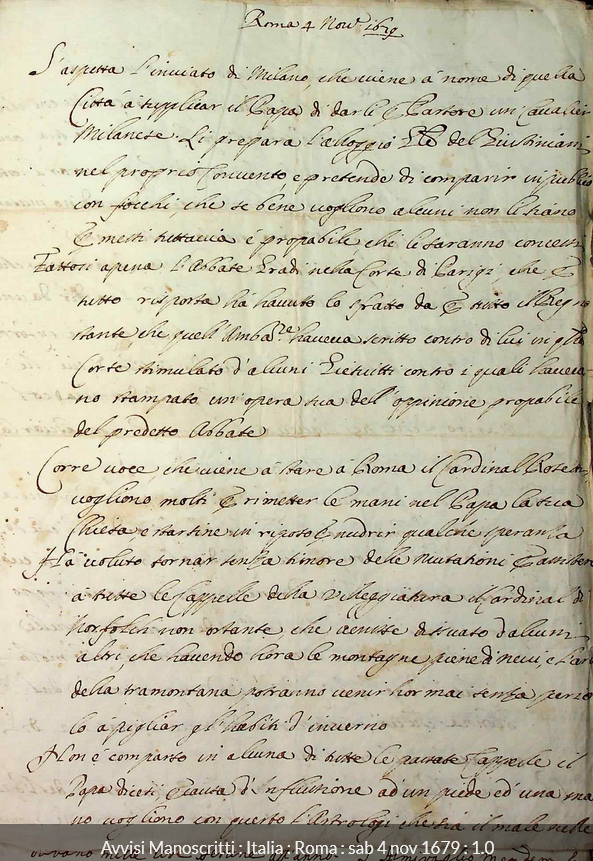 Roma 4 Nov.e 1679
S'aspetta l'inviato di Milano, che viene à nome di quella
Città à supplicar il Papa di darli P Pastore un Cavalier
Milanese. Li prepara l'alloggio del Giustiniani
nel proprio Convento, e pretende di comparir in publico
con fiocchi, che se bene vogliono alcuni non li siano
P mesti tuttavia è propabile che li saranno concessi
Fattosi apena l'Abbate Pradi nella Corte di Parigi che P
tutto risposta hà havuto lo sfratto da P tutto il Regno
stante che quell'Amba.re haveva scritto contro di lui in q.lla
Corte stimulato d'alcuni Giesuitti contro i quali haveva
no stampato un'opera sua dell'oppinione propabile
del predetto Abbate
Corre voce, che viene à stare à Roma il Cardinal Rosetti
vogliono molti P rimetter le mani nel Papa la sua
Chiesa e starsine in riposo P nudrir qualche speranza
Hà voluto tornar senza timore delle mutationi P assister
à tutte le Cappelle della Villeggiatura il Cardinal di
Norfolch non ostante che venisse disuaso d'alcuni
altri, che havendo hora le montagne piene di nevi, e l'aria
della tramontana potranno venir hor mai senza perico
lo a pigliar gl'habiti d'inverno
Non è comparso in alcuna di tutte le passate Cappelle il
Papa dicesi P causa d'Influssione ad'un piede ed'una ma
no vogliono con questo l'Astrologi che sia il male nelle
Avvisi Manoscritti : Italia : Roma : sab 4 nov 1679 : 1.0